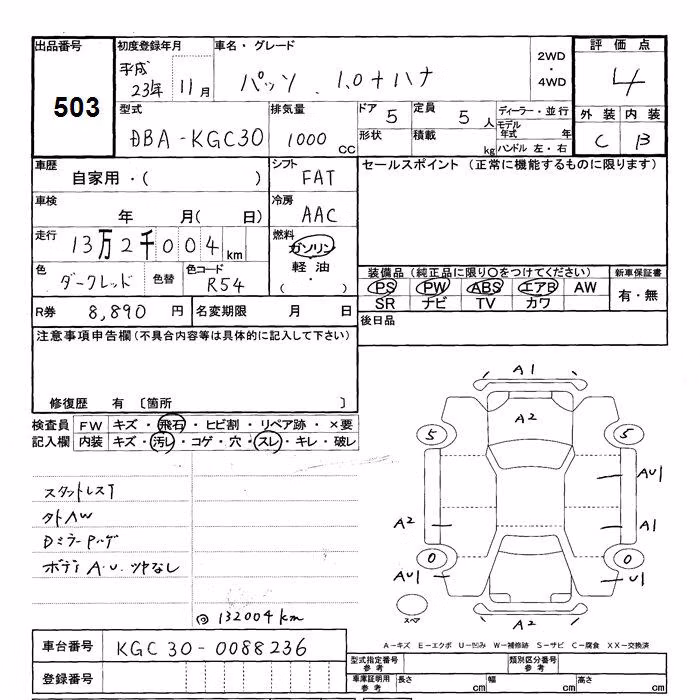 出品番号 初度登録年月 車名・グレード 2WD・4WD 評価点
503 平成23年 11月 パッソ 1.0+ハナ 4
型式 排気量 ドア 5 定員 5人 ディーラー・並行 外装 内装
DBA-KGC30 1000cc 形状 積載 kg モデル年式 年 C B
ハンドル 左・右
車歴 シフト セールスポイント (正常に機能するものに限ります)
自家用・( ) FAT
車検 年 月( 日) 冷房 AAC
走行 13万2千004km 燃料 ガソリン 軽油 ( ・ )
色 ダークレッド 色替 色コード R54
装備品 (純正品に限り○をつけてください) 新車保証書
PS PW ABS エアB AW 有・無
SR ナビ TV カワ
R券 8,890円 名変期限 月 日 後日品
注意事項申告欄(不具合内容等は具体的に記入して下さい)
修復歴 有 〔箇所 〕
検査員 FW キズ・飛石・ヒビ割・リペア跡・×要
記入欄 内装 キズ・汚レ・コゲ・穴・スレ・キレ・破レ
A1
A2
5 5
AU1
A2 A1
0 0
AU1 U1
スペア
A2
スタットレスT
外AW
DミラーPハゲ
ボデーA.U.ツヤなし
◎132004km
車台番号 KGC30-0088236
A-キズ E-エクボ U-凹み W-補修跡 S-サビ C-腐食 XX-交換済
登録番号
型式指定番号 参考 類別区分番号 参考
車庫証明用 参考 長さ cm 幅 cm 高さ cm